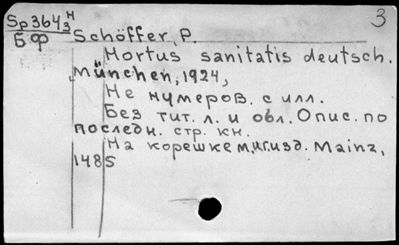 3
Sp364/3 н
БФ
Schöffer, P.
Hortus sanitatis deutsch.
München, 1924,
Не нумеров. с илл.
Без тит. л. и обл. Опис. по
последн. стр. кн.
На корешке м.и г. изд. Mainz,
1485